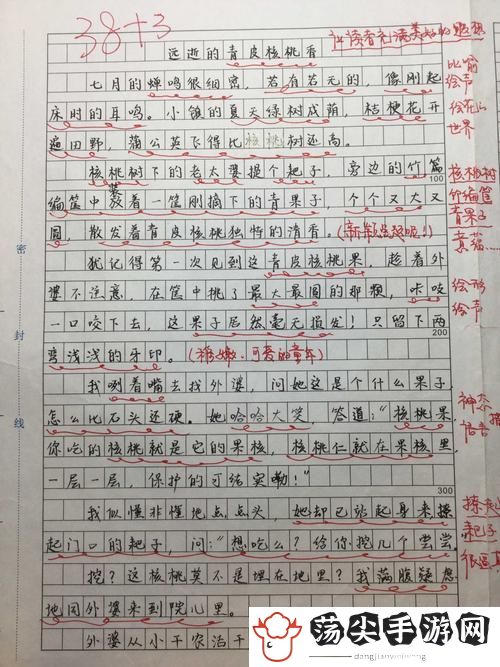 38+3
让读者充满美好的遐想
远逝的青皮核桃香
七月的蝉鸣很细密，若有若无的，像刚起
床时的耳鸣。小镇的夏天绿树成荫，桔梗花开
遍田野，蒲公英飞得比核桃树还高。
比喻
绘声
世界
核桃树下的老太婆提个耙子，旁边的竹篇
100
编筐中装着一筐刚摘下的青果子，个个又大又
圆，散发着青皮核桃独特的清香。
核桃树
竹编筐
青果子
犹记得第一次见到这青皮核桃果，趁着外
婆不注意，在筐中挑了最大最圆的那颗，咔吱
一口咬下去，这果子居然毫无损发！只留下两
200
弯浅浅的牙印。（稚嫩、可爱的童年）
绘形
绘声
我咧着嘴去找外婆，问她这是个什么果子，
怎么比石头还硬。她哈哈大笑，答道：“核桃果，
你吃的核桃就是它的果核，核桃仁就在果核里，
一层一层，保护的可结实嘞！”
300
神态
语言
我似懂非懂地点点头，她却已站起身来操
起门口的耙子，问：“想吃么？给你挖几个尝尝。
耙子
很逼真
挖？这核桃莫不是埋在地里？我满腹疑惑
地同外婆来到院儿里。
外婆从小干农活干
密
封
线
荡尖手游网
dangjianweixinong.com